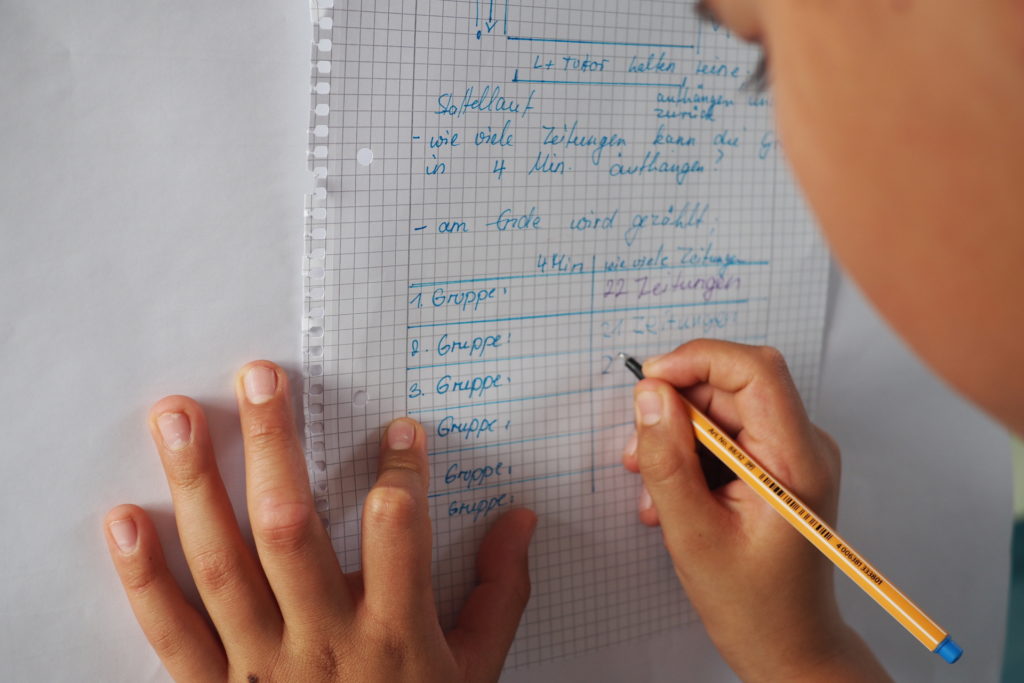 L + Tutor halten seine
Staffellauf
aufhängen un
zurück
- wie viele Zeitungen kann die G
in 4 Min. aufhangen?
- am Ende wird gezählt,
4 Min wie viele Zeitungen
1. Gruppe: 22 Zeitungen
2. Gruppe: 21 Zeitungen
3. Gruppe: 2
Gruppe:
Gruppe:
Gruppe:
Art. No. 88/32
4 006381 333801